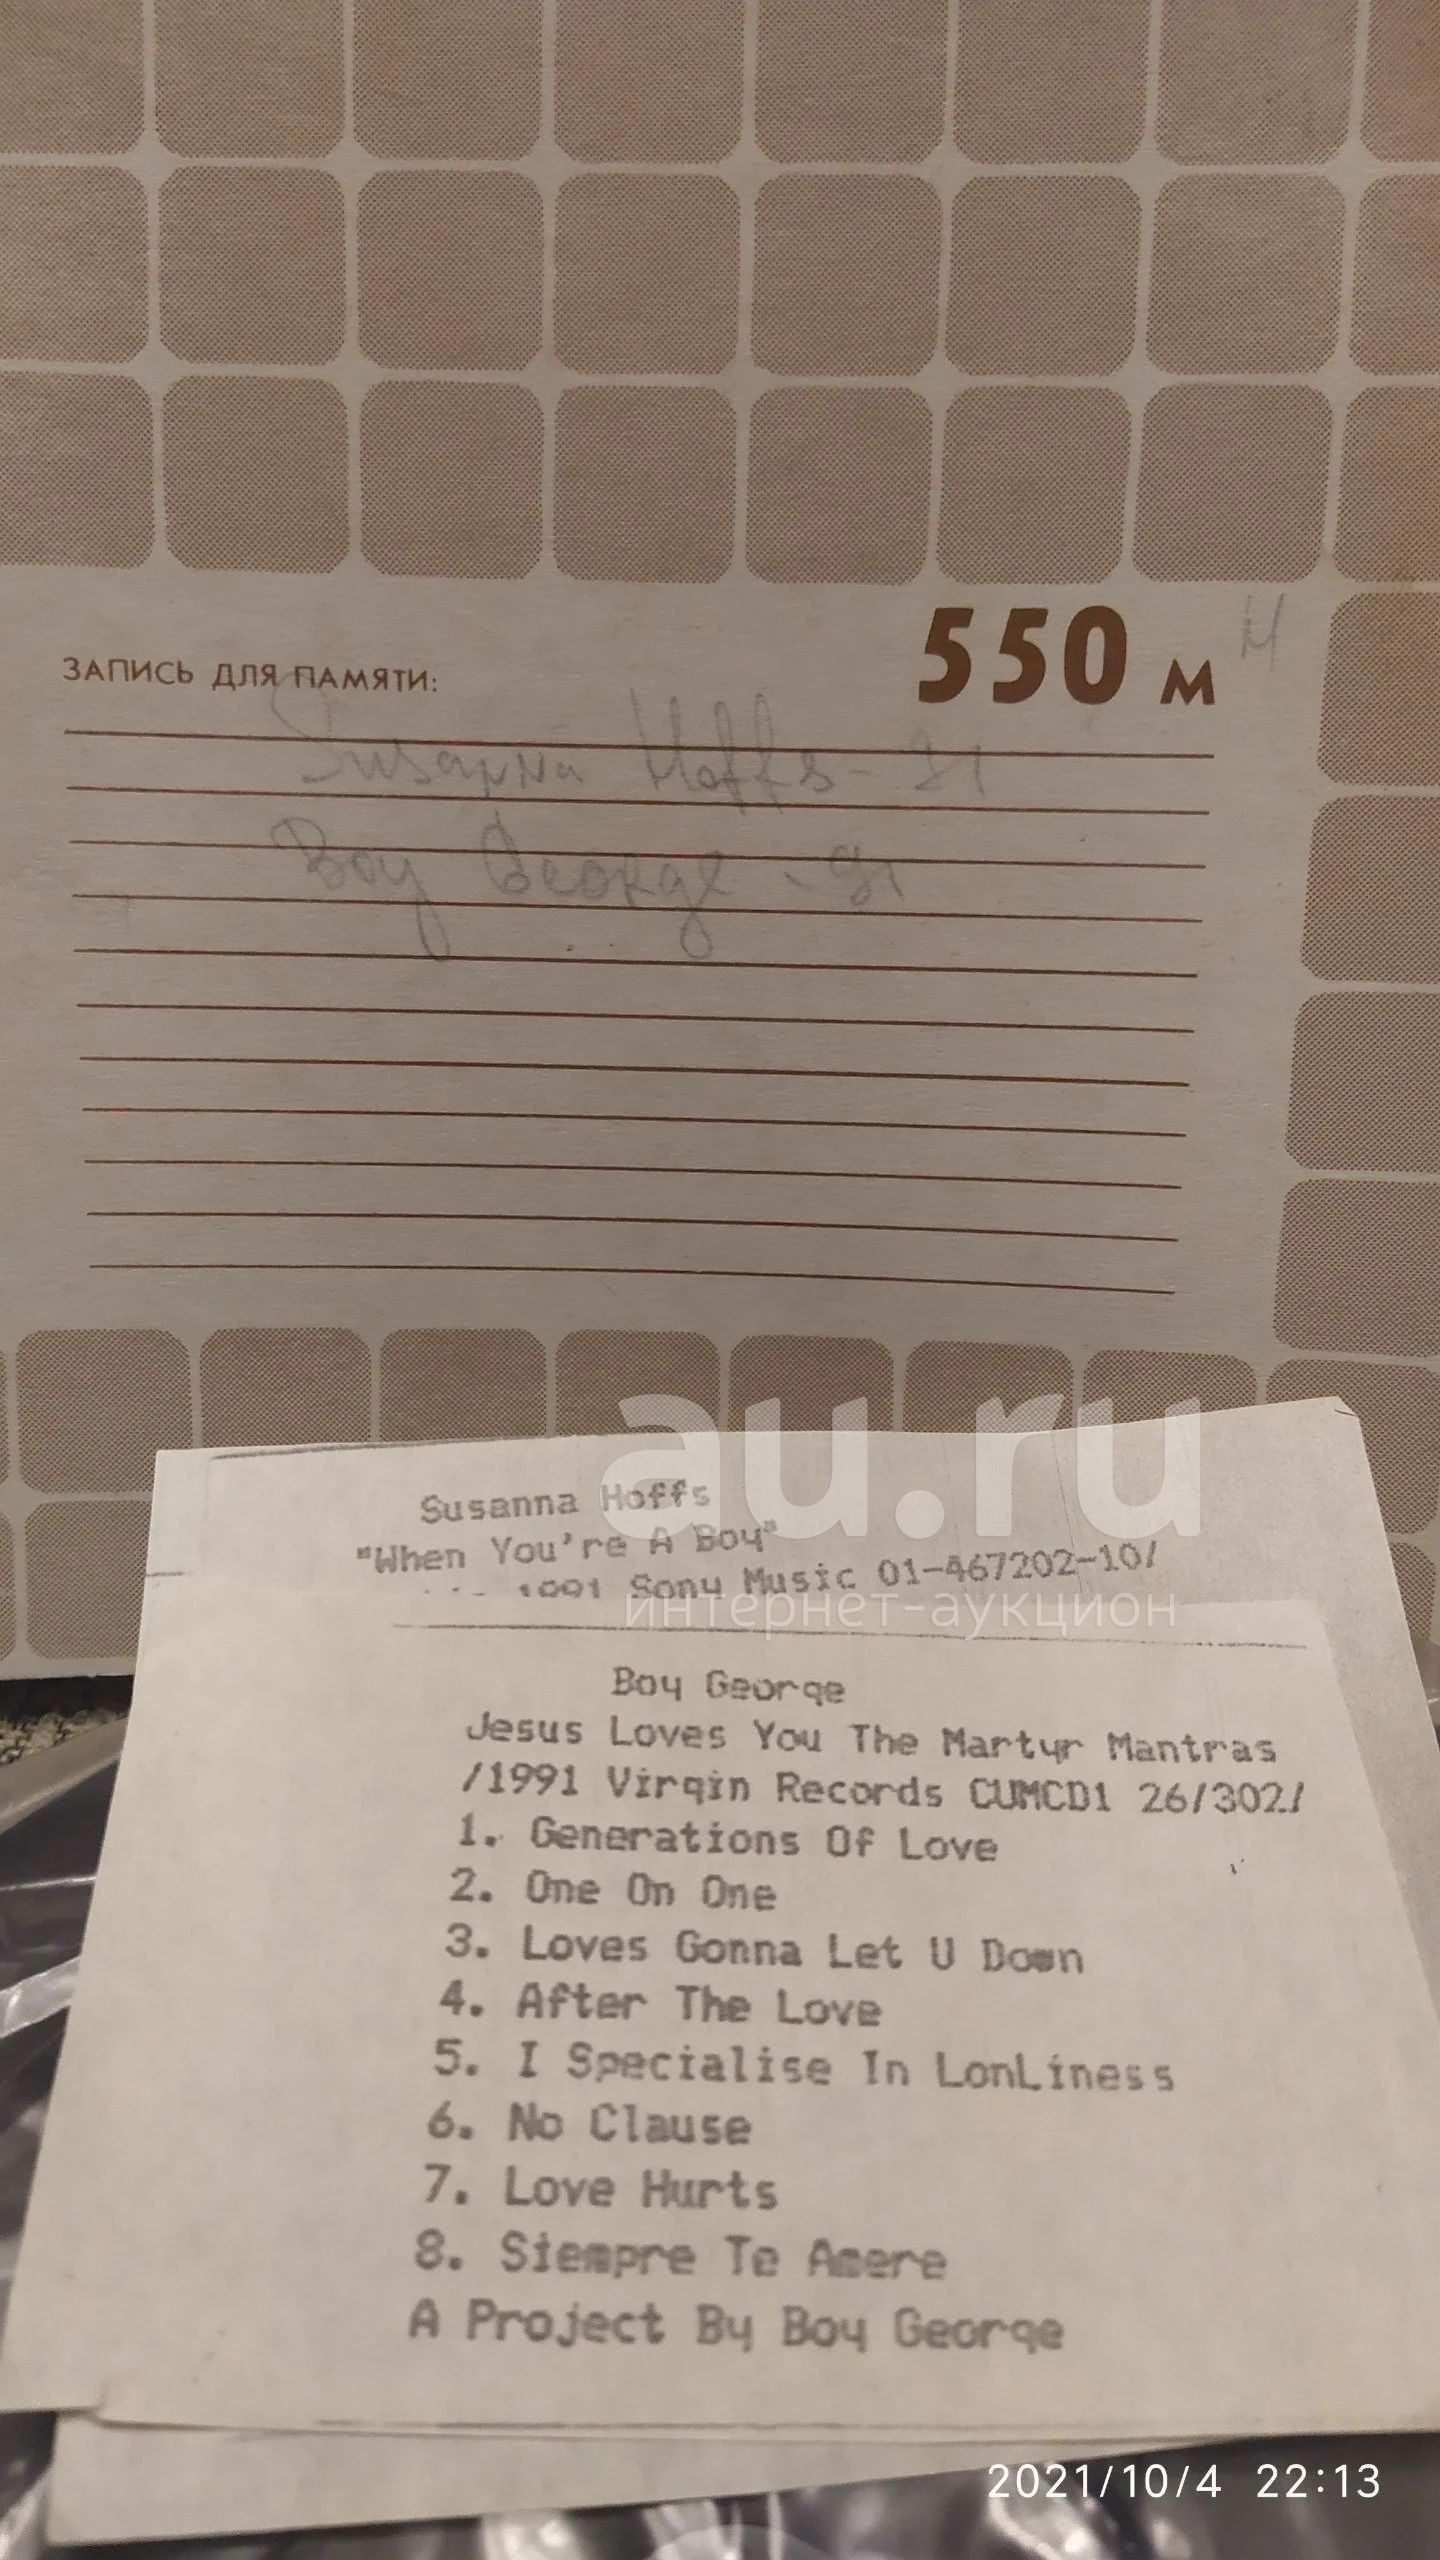 550 м
н
ЗАПИСЬ ДЛЯ ПАМЯТИ:
Susanna Hoffs - 91
Boy George - 91
au.ru
интернет-аукцион
Susanna Hoffs
"When You're A Boy"
1991 Sony Music 01-467202-10/
Boy George
Jesus Loves You The Martyr Mantras
/1991 Virgin Records CUMCD1 26/302/
1. Generations Of Love
2. One On One
3. Loves Gonna Let U Down
4. After The Love
5. I Specialise In LonLiness
6. No Clause
7. Love Hurts
8. Siempre Te Amere
A Project By Boy George
2021/10/4 22:13